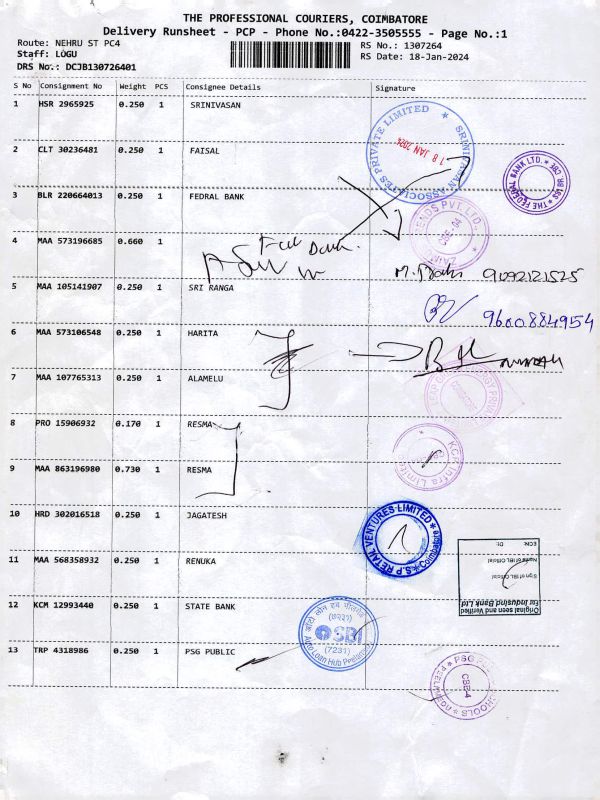 THE PROFESSIONAL COURIERS, COIMBATORE
Delivery Runsheet - PCP - Phone No.:0422-3505555 - Page No.:1
Route: NEHRU ST PC4 RS No.: 1307264
Staff: LOGU RS Date: 18-Jan-2024
DRS No.: DCJB130726401
S No Consignment No Weight PCS Consignee Details Signature
1 HSR 2965925 0.250 1 SRINIVASAN
SRINIVASAN ASSOCIATES PRIVATE LIMITED
18 JAN 2024
2 CLT 30236481 0.250 1 FAISAL
THE FEDERAL BANK LTD.
3 BLR 220664013 0.250 1 FEDRAL BANK
PVT LTD.
CBE-04
4 MAA 573196685 0.660 1
9092121525
5 MAA 105141907 0.250 1 SRI RANGA
9600884954
6 MAA 573106548 0.250 1 HARITA
7 MAA 107765313 0.250 1 ALAMELU
8 PRO 15906932 0.170 1 RESMA
KCP Infra Limited
9 MAA 863196980 0.730 1 RESMA
10 HRD 302016518 0.250 1 JAGATESH
S.P RETAIL VENTURES LIMITED
Coimbatore
11 MAA 568358932 0.250 1 RENUKA
Original seen and Verified
For Indusind Bank Ltd
Sign of IBL Official
Name of IBL Official
ECN:
Dt:
12 KCM 12993440 0.250 1 STATE BANK
SBI
(7231)
Auto Loan Hub Peelamedu
13 TRP 4318986 0.250 1 PSG PUBLIC
PSG PUBLIC SCHOOLS
CBE-4